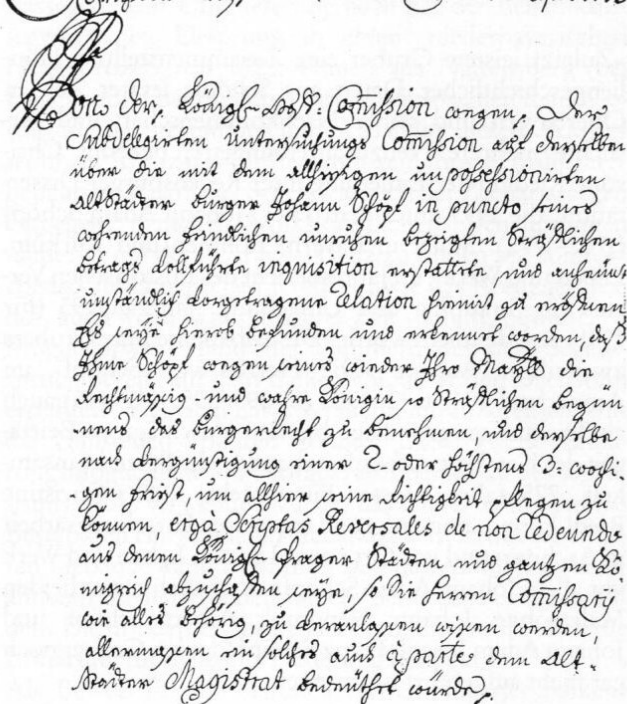 Von der Königl. Hoff-Commission wegen, der
Subdelegirten Untersuchungs Commission auf derselben
über die mit dem allhiesigen unpossessionirten
AltStädter burger Johann Schöpf in puncto seines
wehrenden feindlichen unruhen bezeigten Sträflichen
betrags vollführte inquisition erstattete, und anheünt
umständlich vorgetragene Relation hiemit zu eröfnen
Es seÿe hierob befunden und erkennet worden, daß
Ihme Schöpf wegen seines wieder Ihro Maÿtt die
Rechtmässig- und wahre Königin so Sträflichen begün-
nens das burgerRecht zu benehmen, und derselbe
nach vergünstigung einer 2- oder höchstens 3: wochi-
gen frist, um allhier seine Richtigkeit pflegen zu
können, ergà Scriptas Reversales de non redeundo
aus denen Königl. Prager Städten und gantzen Kö-
nigreich abzuschaffen seÿe, so die Herren Commissarÿ
wie alles behörig, zu veranlassen wissen werden,
allermassen ein solches auch àparte dem Alt-
Städter Magistrat bedeüthet würde.